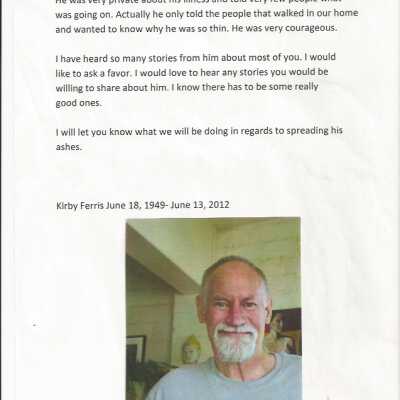 He was very private about his illness and told very few people what
was going on. Actually he only told the people that walked in our home
and wanted to know why he was so thin. He was very courageous.
I have heard so many stories from him about most of you. I would
like to ask a favor. I would love to hear any stories you would be
willing to share about him. I know there has to be some really
good ones.
I will let you know what we will be doing in regards to spreading his
ashes.
Kirby Ferris June 18, 1949- June 13, 2012